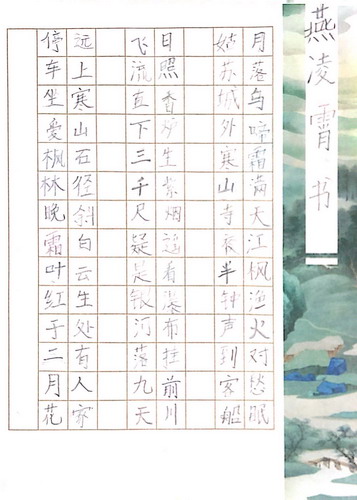 燕凌霄书
月落乌啼霜满天江枫渔火对愁眠
姑苏城外寒山寺夜半钟声到客船
日照香炉生紫烟遥看瀑布挂前川
飞流直下三千尺疑是银河落九天
远上寒山石径斜白云生处有人家
停车坐爱枫林晚霜叶红于二月花